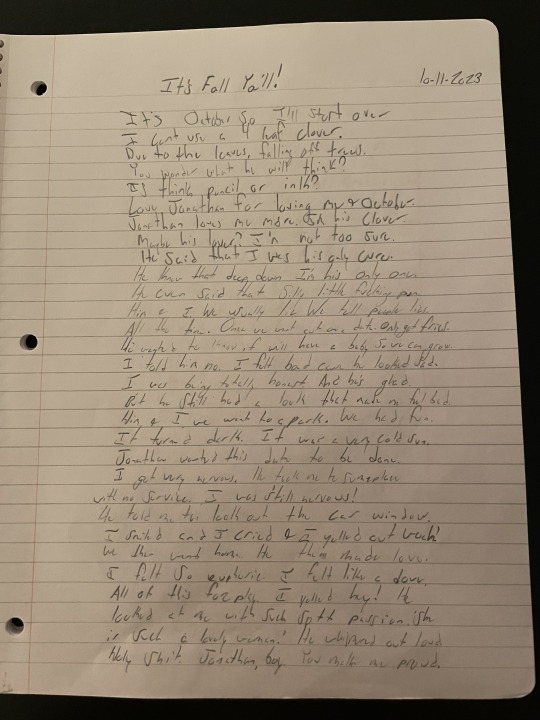 It's Fall Ya'll!
10-11-2023
It's October So I'll start over
I cant use a 4 leaf clover.
Due to the leaves, falling off trees.
You wonder what he will think?
Is think pencil or ink?
Love Jonathan for loving me & October.
Jonathan loves me more. Im his Clover
Maybe his lover? I'm not too sure.
He Said that I was his only cure.
He knew that deep down Im his only one
He even said that Silly little fucking pun
Him & I We usually lie We tell people lies
All the time. Once we went out on a date. Only got fries.
He wanted to know if will have a baby So we can grow.
I told him no. I felt bad he looked Sad.
I was being totally honest And his glad.
But he Still had a look that made me feel bad
Him & I we went to a park. We had fun.
It turned dark. It was a very cold sun.
Jonathan wanted this date to be done.
I got very nervous. He took me to someplace
with no service. I was still nervous!
He told me to look out the car window.
I smiled and I cried & I yelled out
We then went home He then made love.
I felt So euphoric. I felt like a dove.
All of this I yelled hey! He
looked at me with such passion. She
is such a lovely women! He whispered out loud
Holy Shit. Jonathan, boy You make me proud.